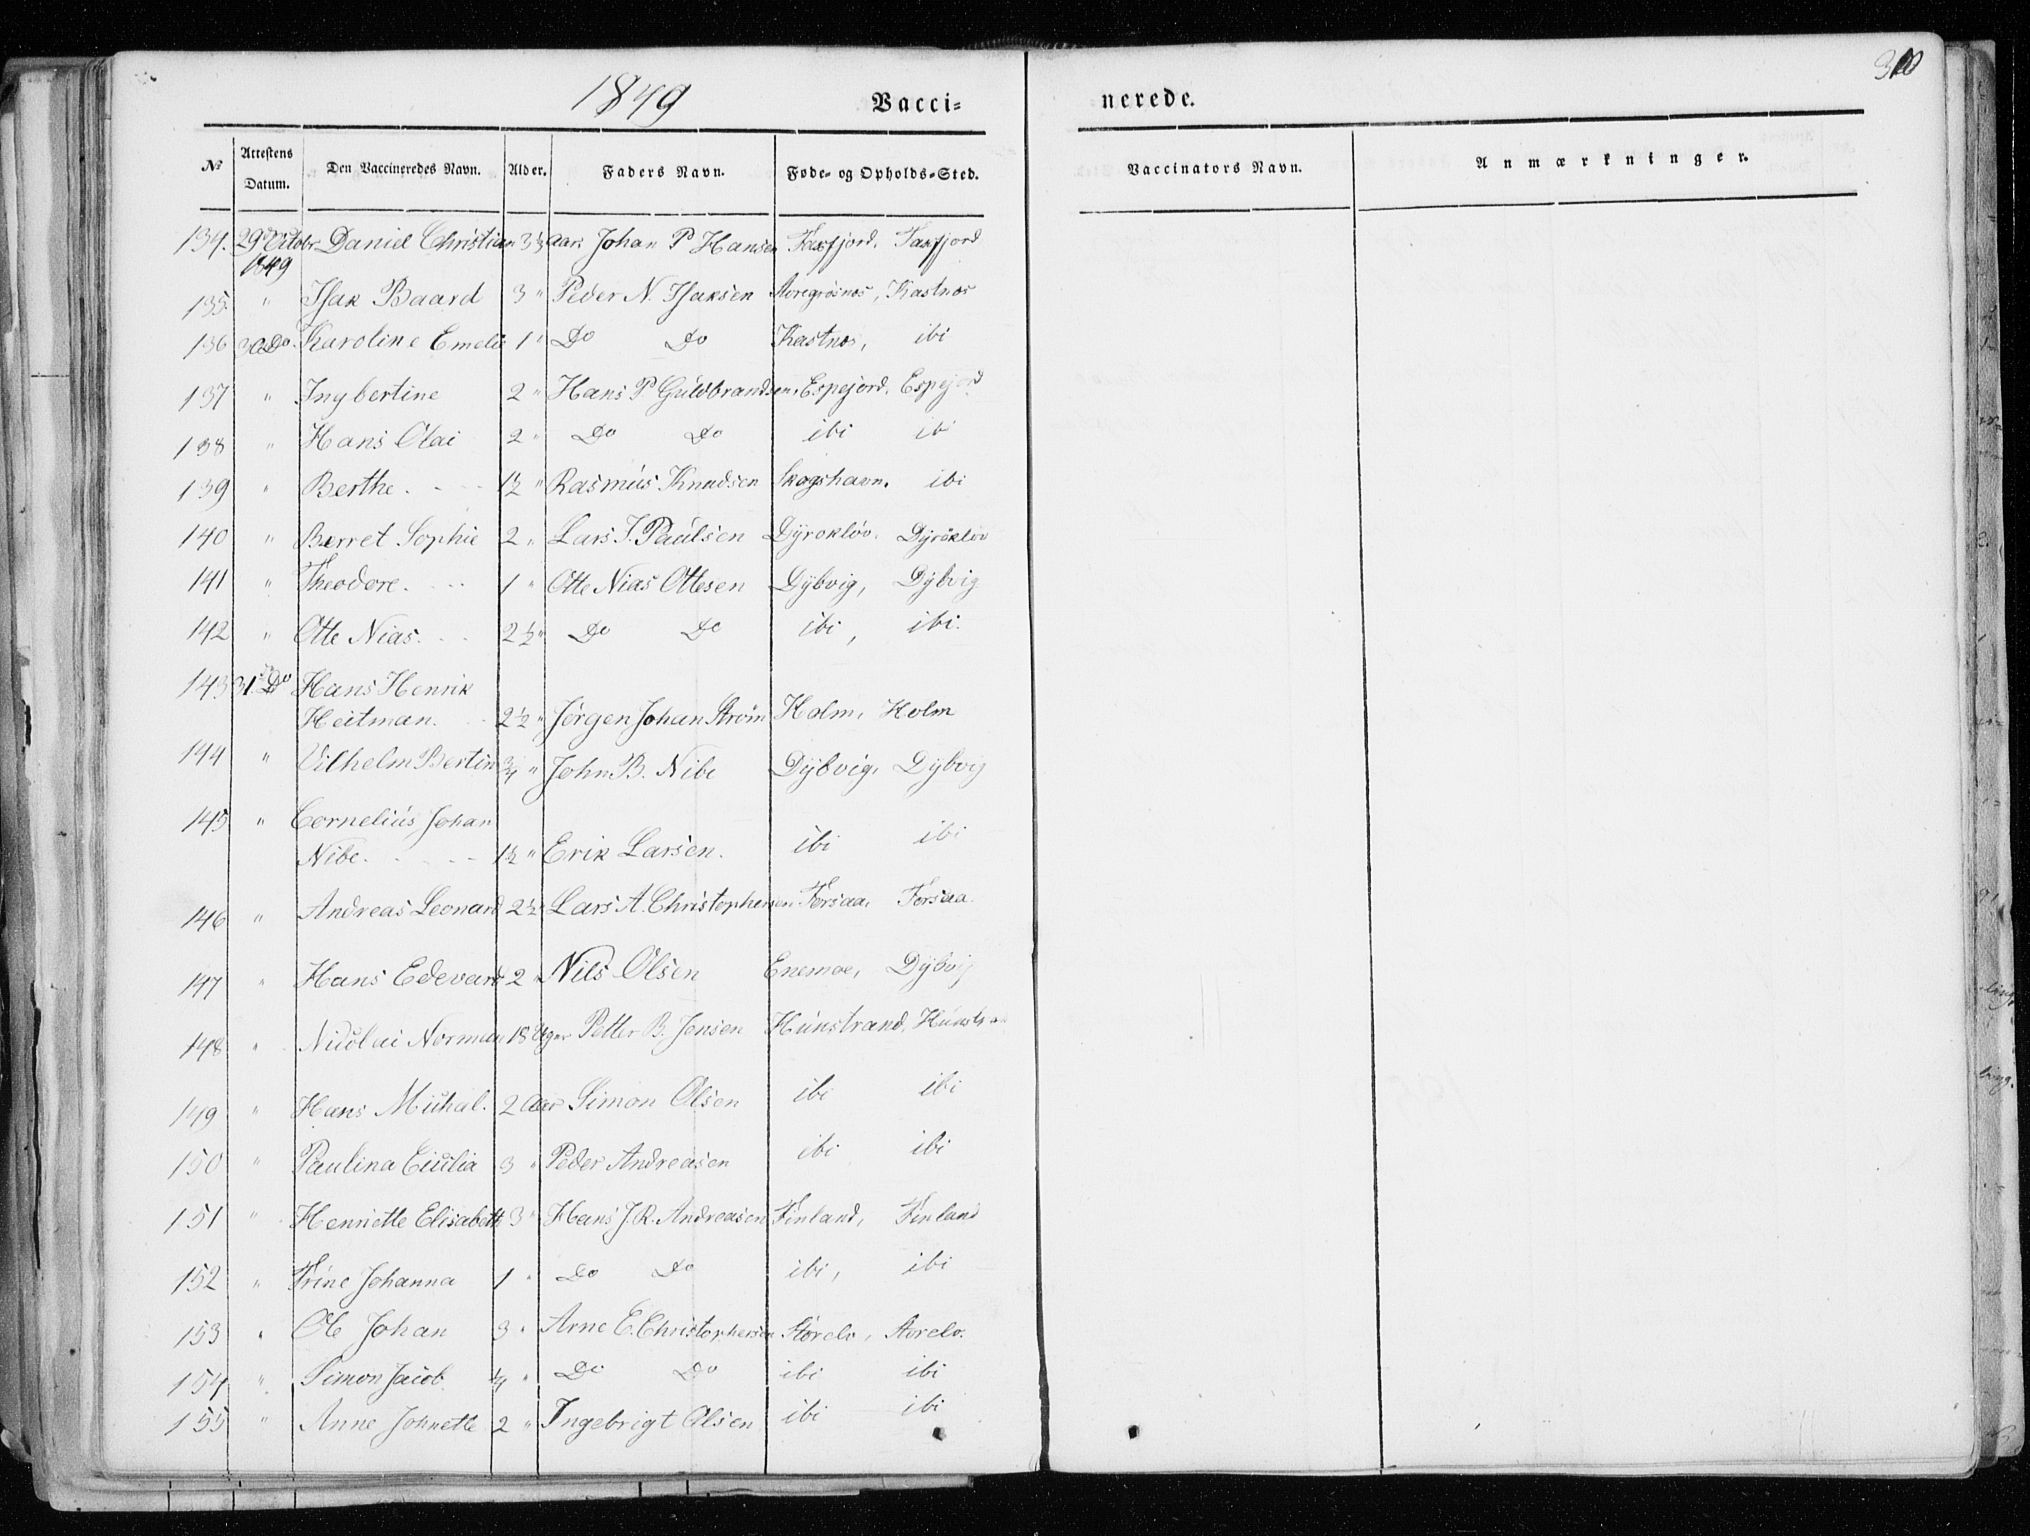 1849 Vacci= nerede. 300
No Attestens Datum. Den Vaccineredes Navn. Alder. Faders Navn. Føde- og Opholds-Sted. Vaccinators Navn. Anmærkninger.
134. 29de Octobr Daniel Christian 3½ aar Johan P Hansen Faxfjord, Faxfjord
1849
135 " Isak Baard 3 " Peder N. Isaksen Storegrøsnæs, Kastnæs
136 30 Do Karoline Emelie 1 " Do Do Kastnæs, ibi
137 " Ingbertine 2 " Hans P Guldbrandsen, Espejord, Espejord
138 " Hans Olai 2 " Do Do ibi ibi
139 " Berthe. 1½ " Rasmus Knudsen Skogshavn. ibi
140 " Berret Sophie 2 " Lars J. Paulsen Dyrøkløv. Dyrøkløv
141 " Theodore. 1 " Otte Nias Ottesen Dybvig, Dybvig
142 " Otte Nias. 2½ " Do Do ibi, ibi.
143 31 Do Hans Henrik
Heitman. 2½ " Jørgen Johan Strøm Holm, Holm
144 " Vilhelm Bertin ¾ " John B. Nibe Dybvig, Dybvig
145 " Cornelius Johan
Nibe. 1½ " Erik Larsen. ibi ibi
146 " Andreas Leonard 2½ Lars A. Christophersen Forsaa, Forsaa.
147 " Hans Edevard 2 " Nils Olsen Enemoe, Dybvig
148 " Nicolai Norman 18 Uger Petter B. Jensen Hunstrand, Hunstran
149 " Hans Michal. 2 Aar Simon Olsen ibi ibi
150 " Paulina Cicilia 3 " Peder Andreasen ibi ibi
151 " Henriette Elisabeth 3 " Hans J. R. Andreasen Finland, Finland
152 " Trine Johanna 1 " Do Do ibi, ibi
153 " Ole Johan 3 " Arne E. Christophersen Storelv, Storelv.
154 " Simon Jacob ¼ " Do Do ibi ibi
155 " Anne Johnette 2 " Ingebrigt Olsen ibi ibi